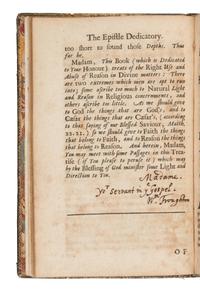 The Epistle Dedicatory.
too short to sound those Depths. Thus
far he.
Madam, This Book (which is Dedicated to
Your Honour) treats of the Right Use and
Abuse of Reason in Divine matters: There
are two extremes which men are apt to run
into; some ascribe too much to Natural Light
and Reason in Religious concernments; and
others ascribe too little. As we should give
to God the things that are God's, and to
Cæsar the things that are Cæsar's, (according
to that saying of our Blessed Saviour, Matth.
22. 21.) so we should give to Faith the things
that belong to Faith, and to Reason the things
that belong to Reason. And herein, Madam,
You may meet with some Passages in this Trea-
tise (if You please to peruse it) which may
by the Blessing of God minister some Light and
Direction to You.
Madame.
yor servant in ye gospel.
OF